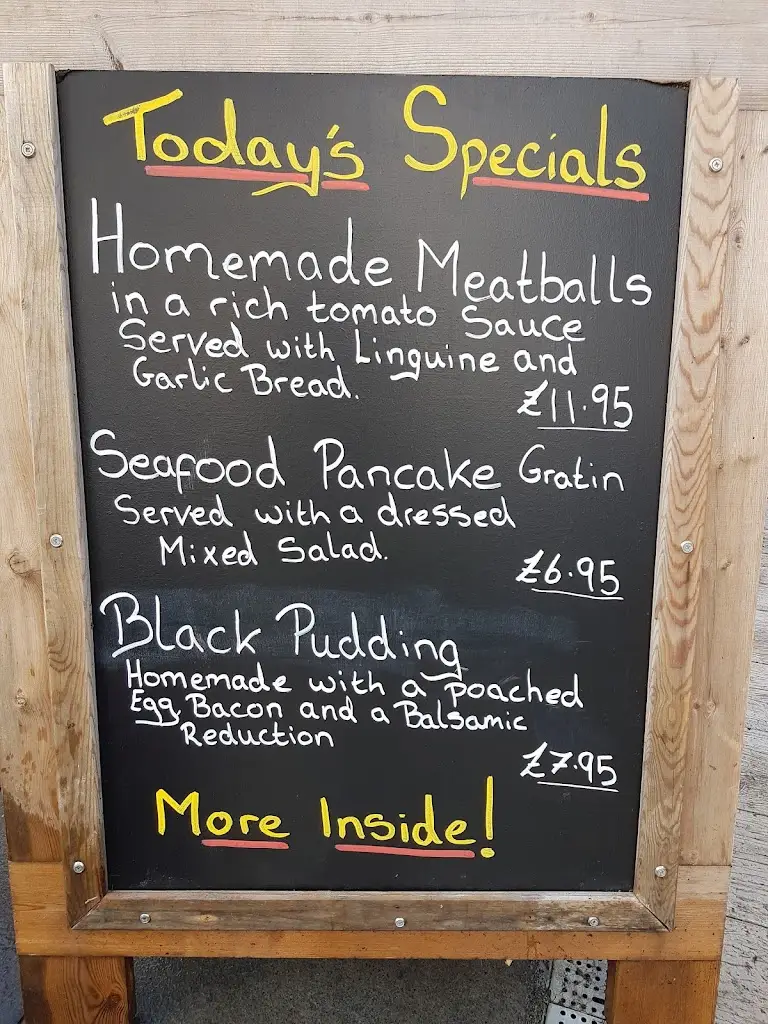 Today's Specials
Homemade Meatballs
in a rich tomato Sauce
Served with Linguine and
Garlic Bread.
£11.95
Seafood Pancake Gratin
Served with a dressed
Mixed Salad.
£6.95
Black Pudding
Homemade with a poached
Egg, Bacon and a Balsamic
Reduction
£7.95
More Inside!